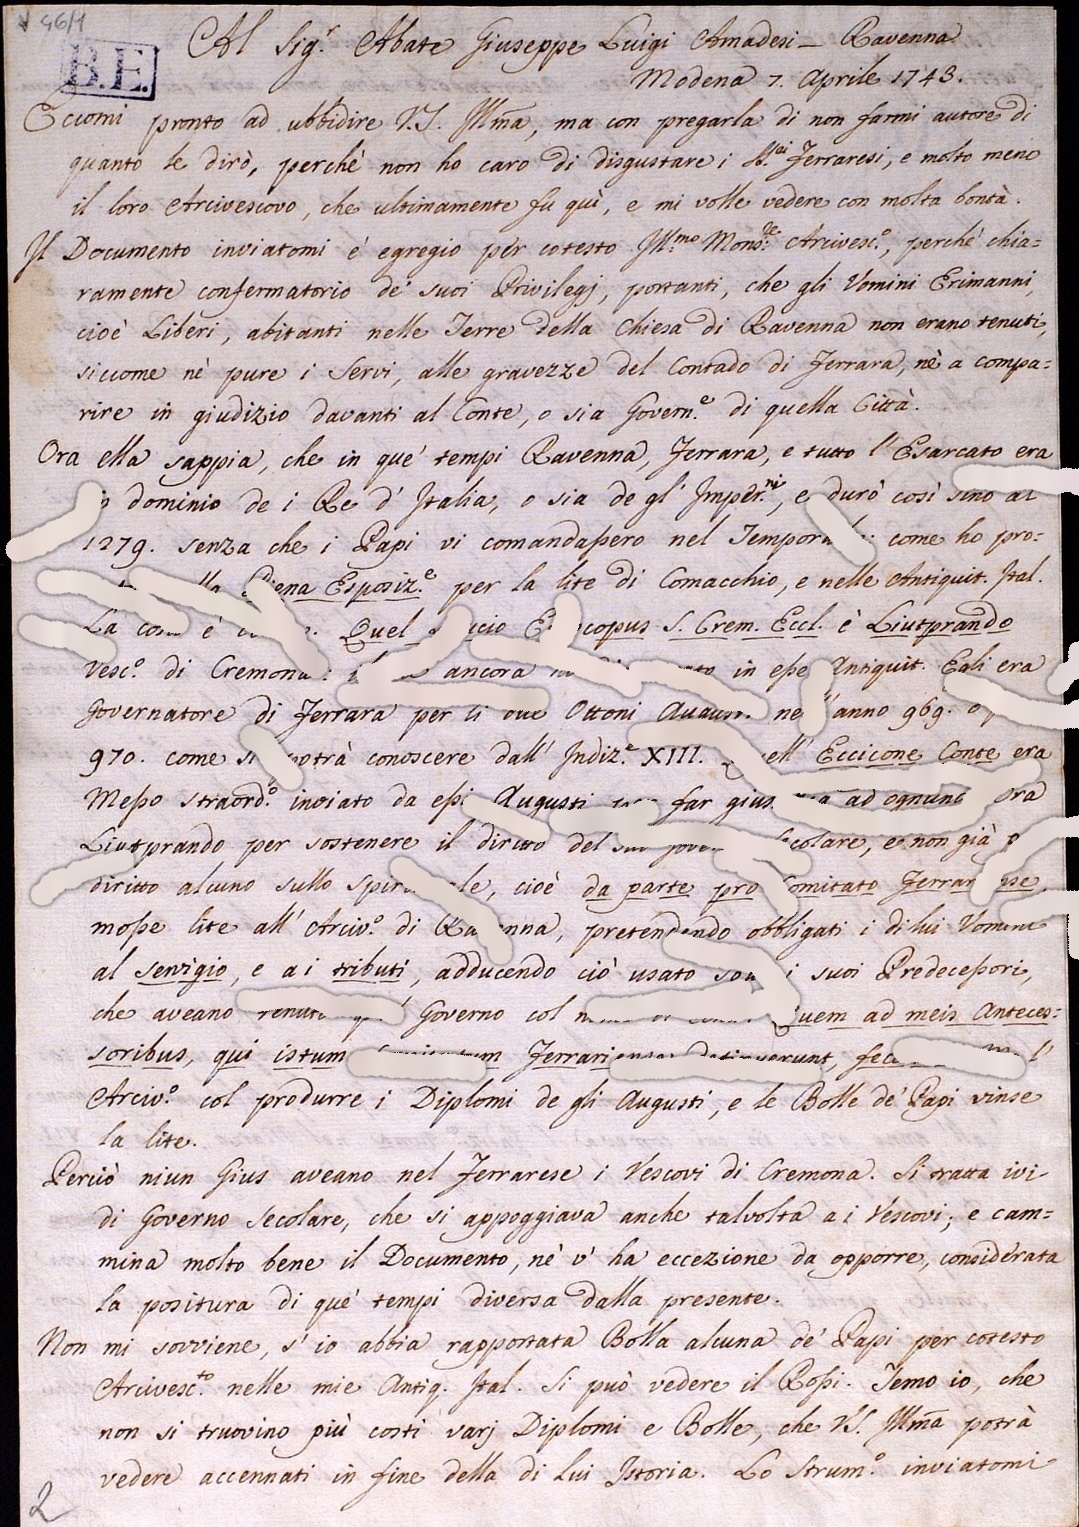 46/1
B.E.
Al Sig.r Abate Giuseppe Luigi Amadesi - Ravenna
Modena 7. Aprile 1743.
Eccomi pronto ad ubbidire V.S. Ill̃ma, ma con pregarla di non farmi autore di
quanto le dirò, perchè non ho caro di disgustare i S.ri Ferraresi, e molto meno
il loro Arcivescovo, che ultimamente fu quì, e mi volle vedere con molta bontà.
Il Documento inviatomi è egregio per cotesto Ill.mo Mons.re Arcivesc.o, perchè chia=
ramente confermatorio de' suoi Privilegj, portanti, che gli Uomini Erimanni,
cioè Liberi, abitanti nelle Terre della Chiesa di Ravenna non erano tenuti,
siccome nè pure i Servi, alle gravezze del Contado di Ferrara, nè a compa=
rire in giudizio davanti al Conte, o sia Govern.e di quella Città.
Ora ella sappia, che in que' tempi Ravenna, Ferrara, e tutto l'Esarcato era
dominio de i Re d'Italia, o sia de gl'Imper.ri, e durò così sino al
1279. senza che i Papi vi comandassero nel come ho pro=
Piena Esposiz.e per la lite di Comacchio, e nelle Antiquit. Ital.
La è Quel S. Crem. Eccl. è Liutprando
Vesc.o di Cremona: ancora in esse Antiquit. Egli era
Governatore di Ferrara per li due Ottoni nell'anno 969. o
970. come si potrà conoscere dall'Indiz.e XIII. Quell'Eccicone Conte era
Messo straord.o inviato da essi Augusti far ad ognuno Ora
Liutprando per sostenere il diritto del secolare, e non già
diritto alcuno sullo spirituale, cioè da parte pro Comitato Ferrariense,
mosse lite all'Arciv.o di Ravenna, pretendendo obbligati i di lui Uomini
al servigio, e a i tributi, adducendo ciò usato i suoi Predecessori,
che aveano Governo col Quem ad meis Anteces=
soribus, qui istum Ferrariensem detinuerunt, l'
Arciv.o col produrre i Diplomi de gli Augusti, e le Bolle de' Papi vinse
la lite.
Perciò niun Gius aveano nel Ferrarese i Vescovi di Cremona. Si tratta ivi
di Governo secolare, che si appoggiava anche talvolta a i Vescovi; e cam=
mina molto bene il Documento, nè v'ha eccezione da opporre, considerata
la positura di que' tempi diversa dalla presente.
Non mi sovviene, s'io abbia rapportata Bolla alcuna de' Papi per cotesto
Arcivesc.to nelle mie Antiq. Ital. Si può vedere il Rossi. Temo io, che
non si truovino più costì varj Diplomi e Bolle, che V.S. Ill̃ma potrà
vedere accennati in fine della di lui Istoria. Lo Strum.o inviatomi
2